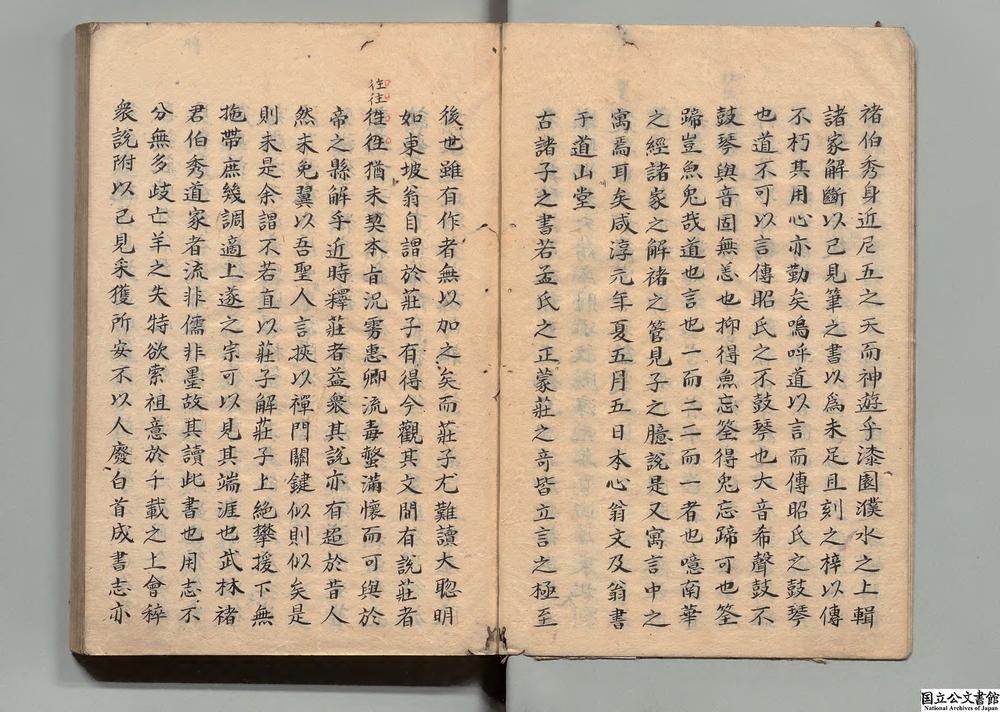 褚伯秀身近尼五之天而神遊乎漆園濮水之上輯
諸家解斷以已見筆之書以為未足且刻之梓以傳
不朽其用心亦勤矣嗚呼道以言而傳昭氏之鼓琴
也道不可以言傳昭氏之不鼓琴也大音希聲鼓不
鼓琴與音固無恙也抑得魚忘筌得兔忘蹄可也筌
蹄豈魚兔哉道也言也一而二二而一者也噫南華
之經諸家之解褚之管見子之臆說是又寓言中之
寓焉耳矣咸淳元年夏五月五日本心翁文及翁書
于道山堂
古諸子之書若孟氏之正蒙莊之奇皆立言之極至
後世雖有作者無以加之矣而莊子尤難讀大聰明
如東坡翁自謂於莊子有得今觀其文間有說莊者
往往
徃徃猶未契本㫖況雱惠卿流毒螫滿懷而可與於
帝之縣解乎近時釋莊者益衆其說亦有超於昔人
然未免翼以吾聖人言挾以禪門關鍵似則似矣是
則未是余謂不若直以莊子解莊子上絶攀援下無
拖帶庶幾調適上遂之宗可以見其端涯也武林褚
君伯秀道家者流非儒非墨故其讀此書也用志不
分無多歧亡羊之失特欲索祖意於千載之上會稡
衆說附以已見采獲所安不以人廢白首成書志亦
国立公文書館
National Archives of Japan